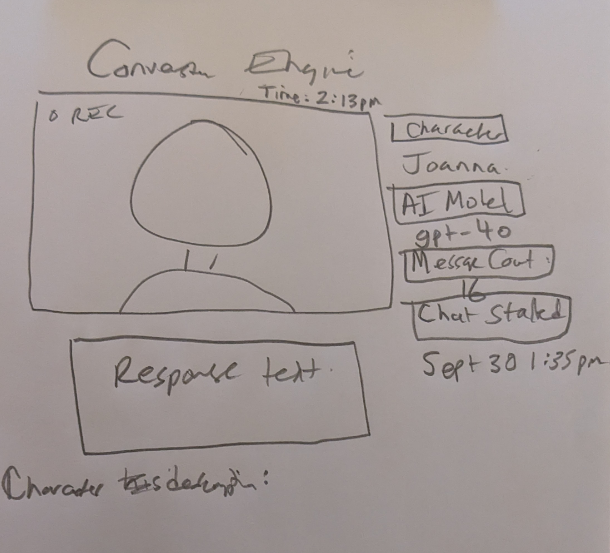 Engine
Time: 2:13pm
O REC
Character
Joanna.
AI Model
gpt-4o
Message Cout
16
Chat Stated
Sept 30 1:35pm
Response text.
Character description: